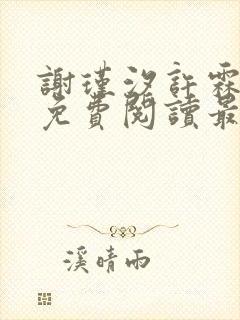 謝瑾汐許霖
免費閱讀最
溪晴雨